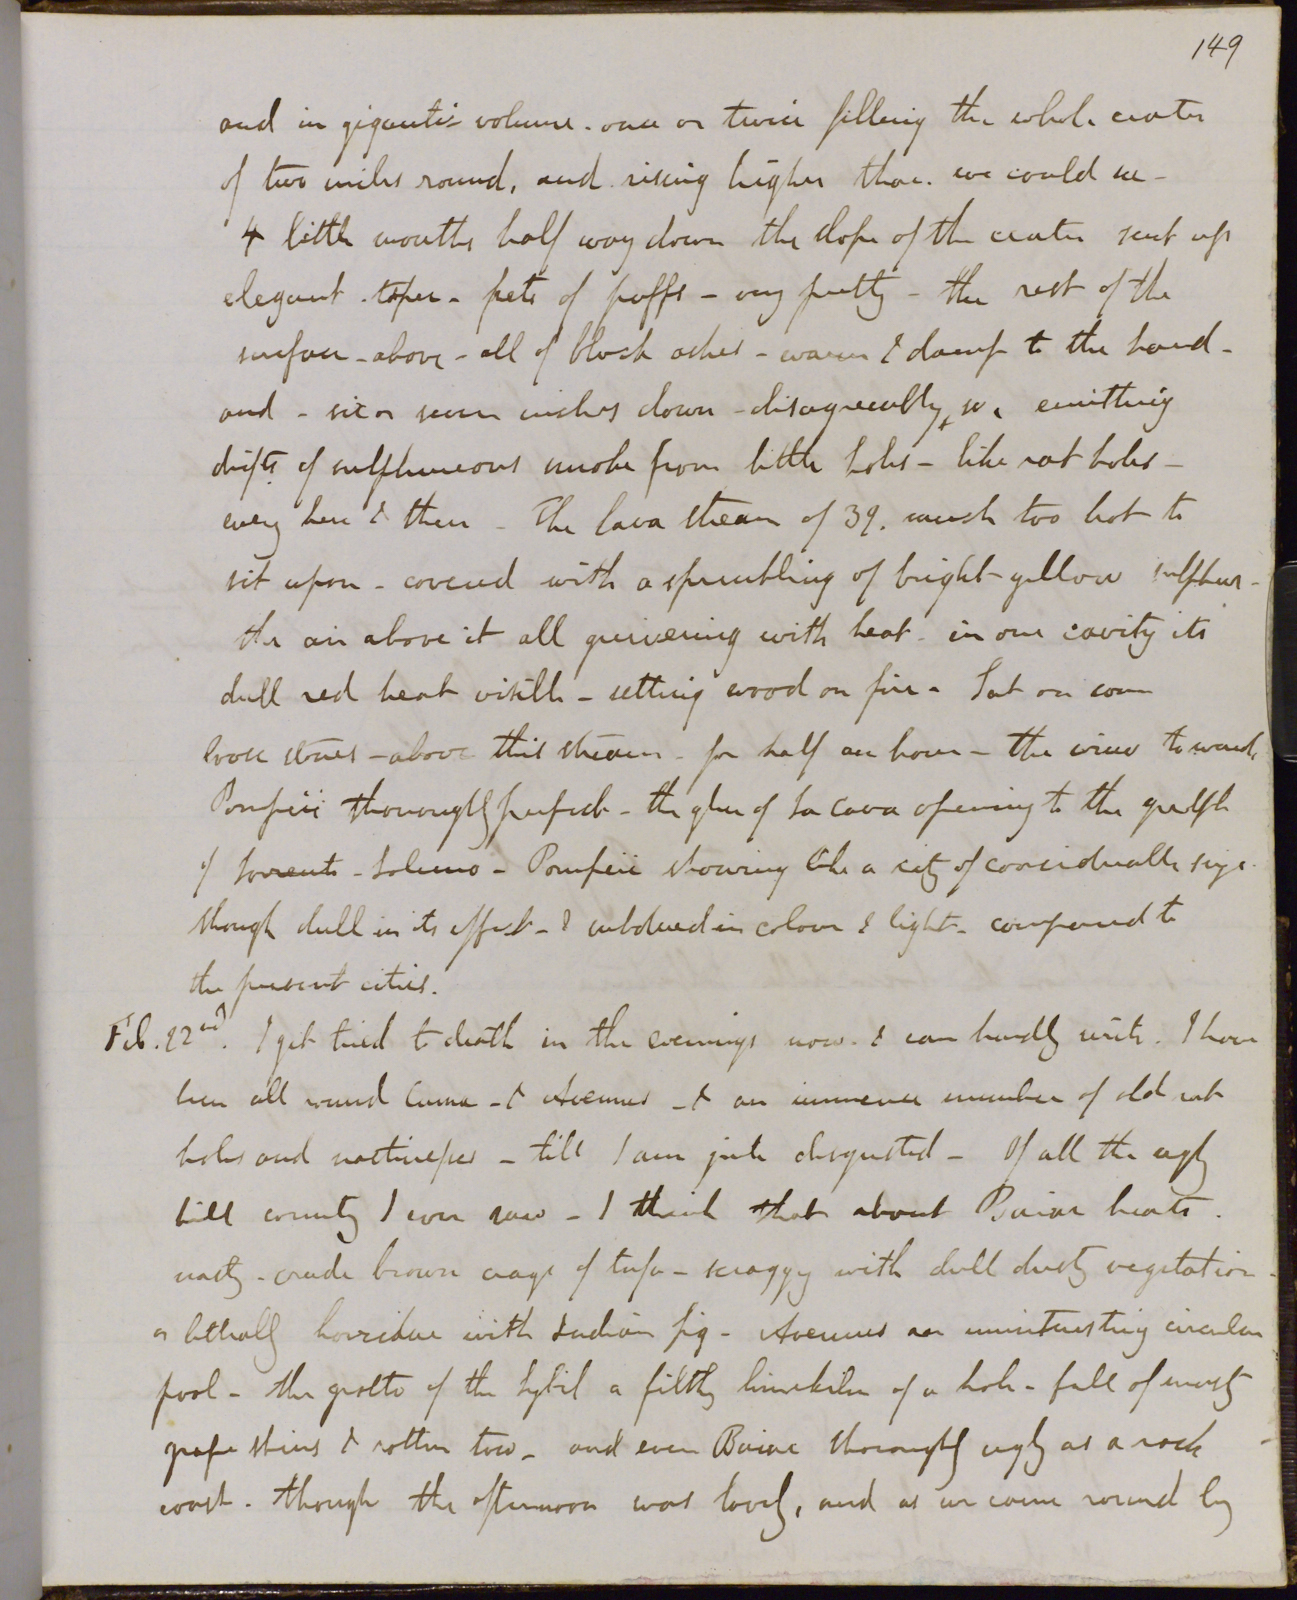 149
and in gigantic volume. once or twice filling the whole crater
of two miles round, and rising higher than we could see -
4 little mouths half way down the slope of the crater sent up
elegant taper - jets of puffs - very pretty - the rest of the
surface - above - all of black ashes - warm & damp to the hand -
and - six or seven inches down - disagreeably so, emitting
drifts of sulphureous smoke from little holes - like rat holes -
every here & there - The lava stream of 39. much too hot to
sit upon - covered with a sprinkling of bright yellow sulphur -
the air above it all quivering with heat - in one cavity its
dull red heat visible - setting wood on fire - Sat on some
loose stones - above this stream - for half an hour - the view towards
Pompeii thoroughly perfect - the glen of La Cava opening to the gulph
of Sorrento - Salerno - Pompeii showing like a city of considerable size -
though dull in its effect - & subdued in colour & light - compared to
the present cities.
Feb. 22nd. I get tired to death in the evenings now - & can hardly write. I have
been all round Cuma - & Avernus - & an immense number of old rat
holes and - till I am quite disgusted - Of all the ugly
hill country I ever saw - I think that about Baiae beats.
nasty - crude brown crags of tufa - scraggy with dull dusty vegetation -
or literally horridae with Indian fig - Avernus an uninteresting circular
pool - the grotto of the Sybil a filthy limekiln of a hole - full of musty
grape skins & rotten tow - and even Baiae thoroughly ugly as a rock
coast - though the afternoon was lovely, and as we came round by